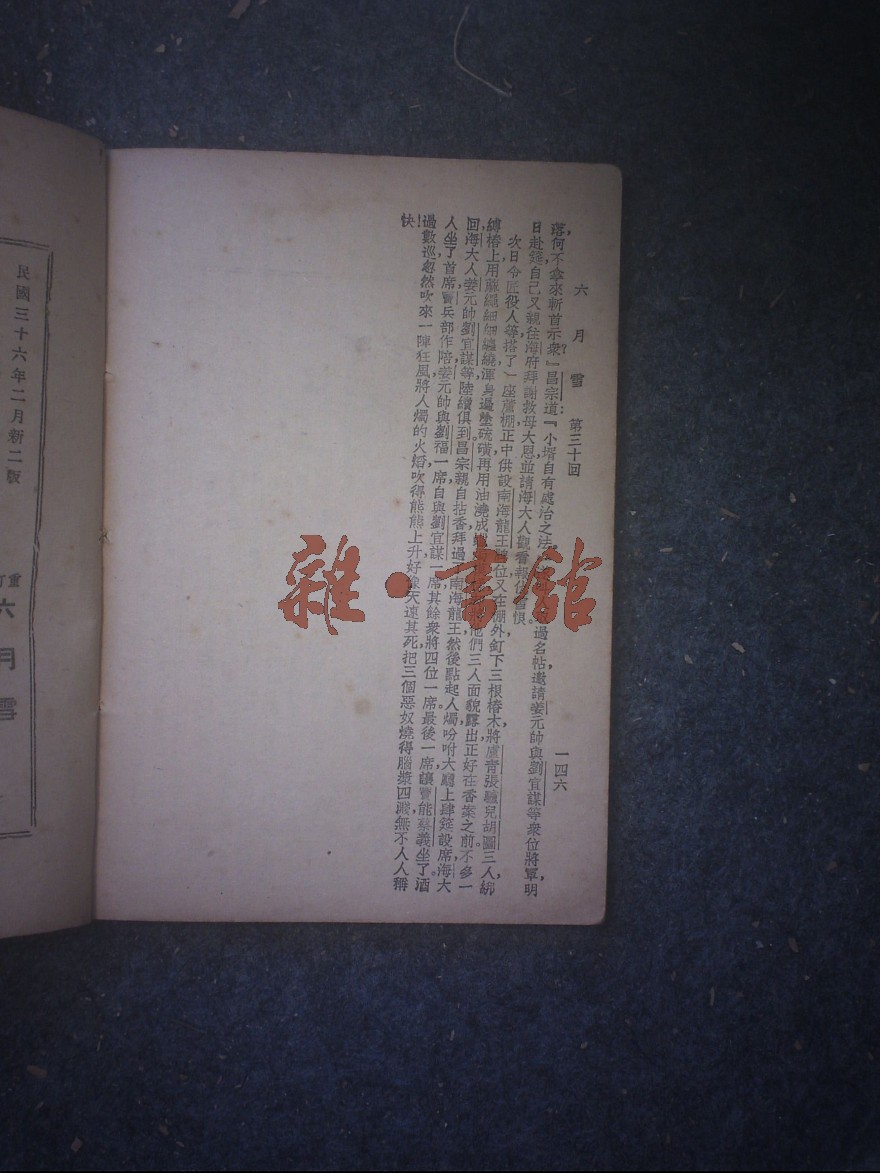 六月雪 第三十回 一四六
落,何不拿來斬首示衆?』昌宗道:『小壻自有處治之法,過名帖,邀請姜元帥與劉宜謀等衆位將軍,明
日赴筵。自己又親往海府拜謝救母大恩,並請海大人觀看報仇雪恨。
次日,令匠役人等搭了一座蘆棚,正中供設南海龍王牌位,又在棚外釘下三根樁木,將盧青張驢兒胡圖三人,綁
縛樁上,用蔴繩細細纏繞,渾身過塗硫磺,再用油澆成,他們三人面貌露出,正好在香案之前。不多一
回,海大人姜元帥劉宜謀等陸續俱到。昌宗親自拈香,拜過了南海龍王,然後點起人燭,吩咐大廳上肆筵設席,海大
人坐了首席,竇兵部作陪,姜元帥與劉福一席,自與劉宜謀一席,其餘衆將四位一席,最後一席,讓竇能蔡義坐了。酒
過數巡,忽然吹來一陣狂風,將人燭的火熖,吹得熊熊上升,好像天速其死,把三個惡奴燒得腦漿四濺,無不人人稱
快!
民國三十六年二月新二版
重訂
六月雪
雜·書館